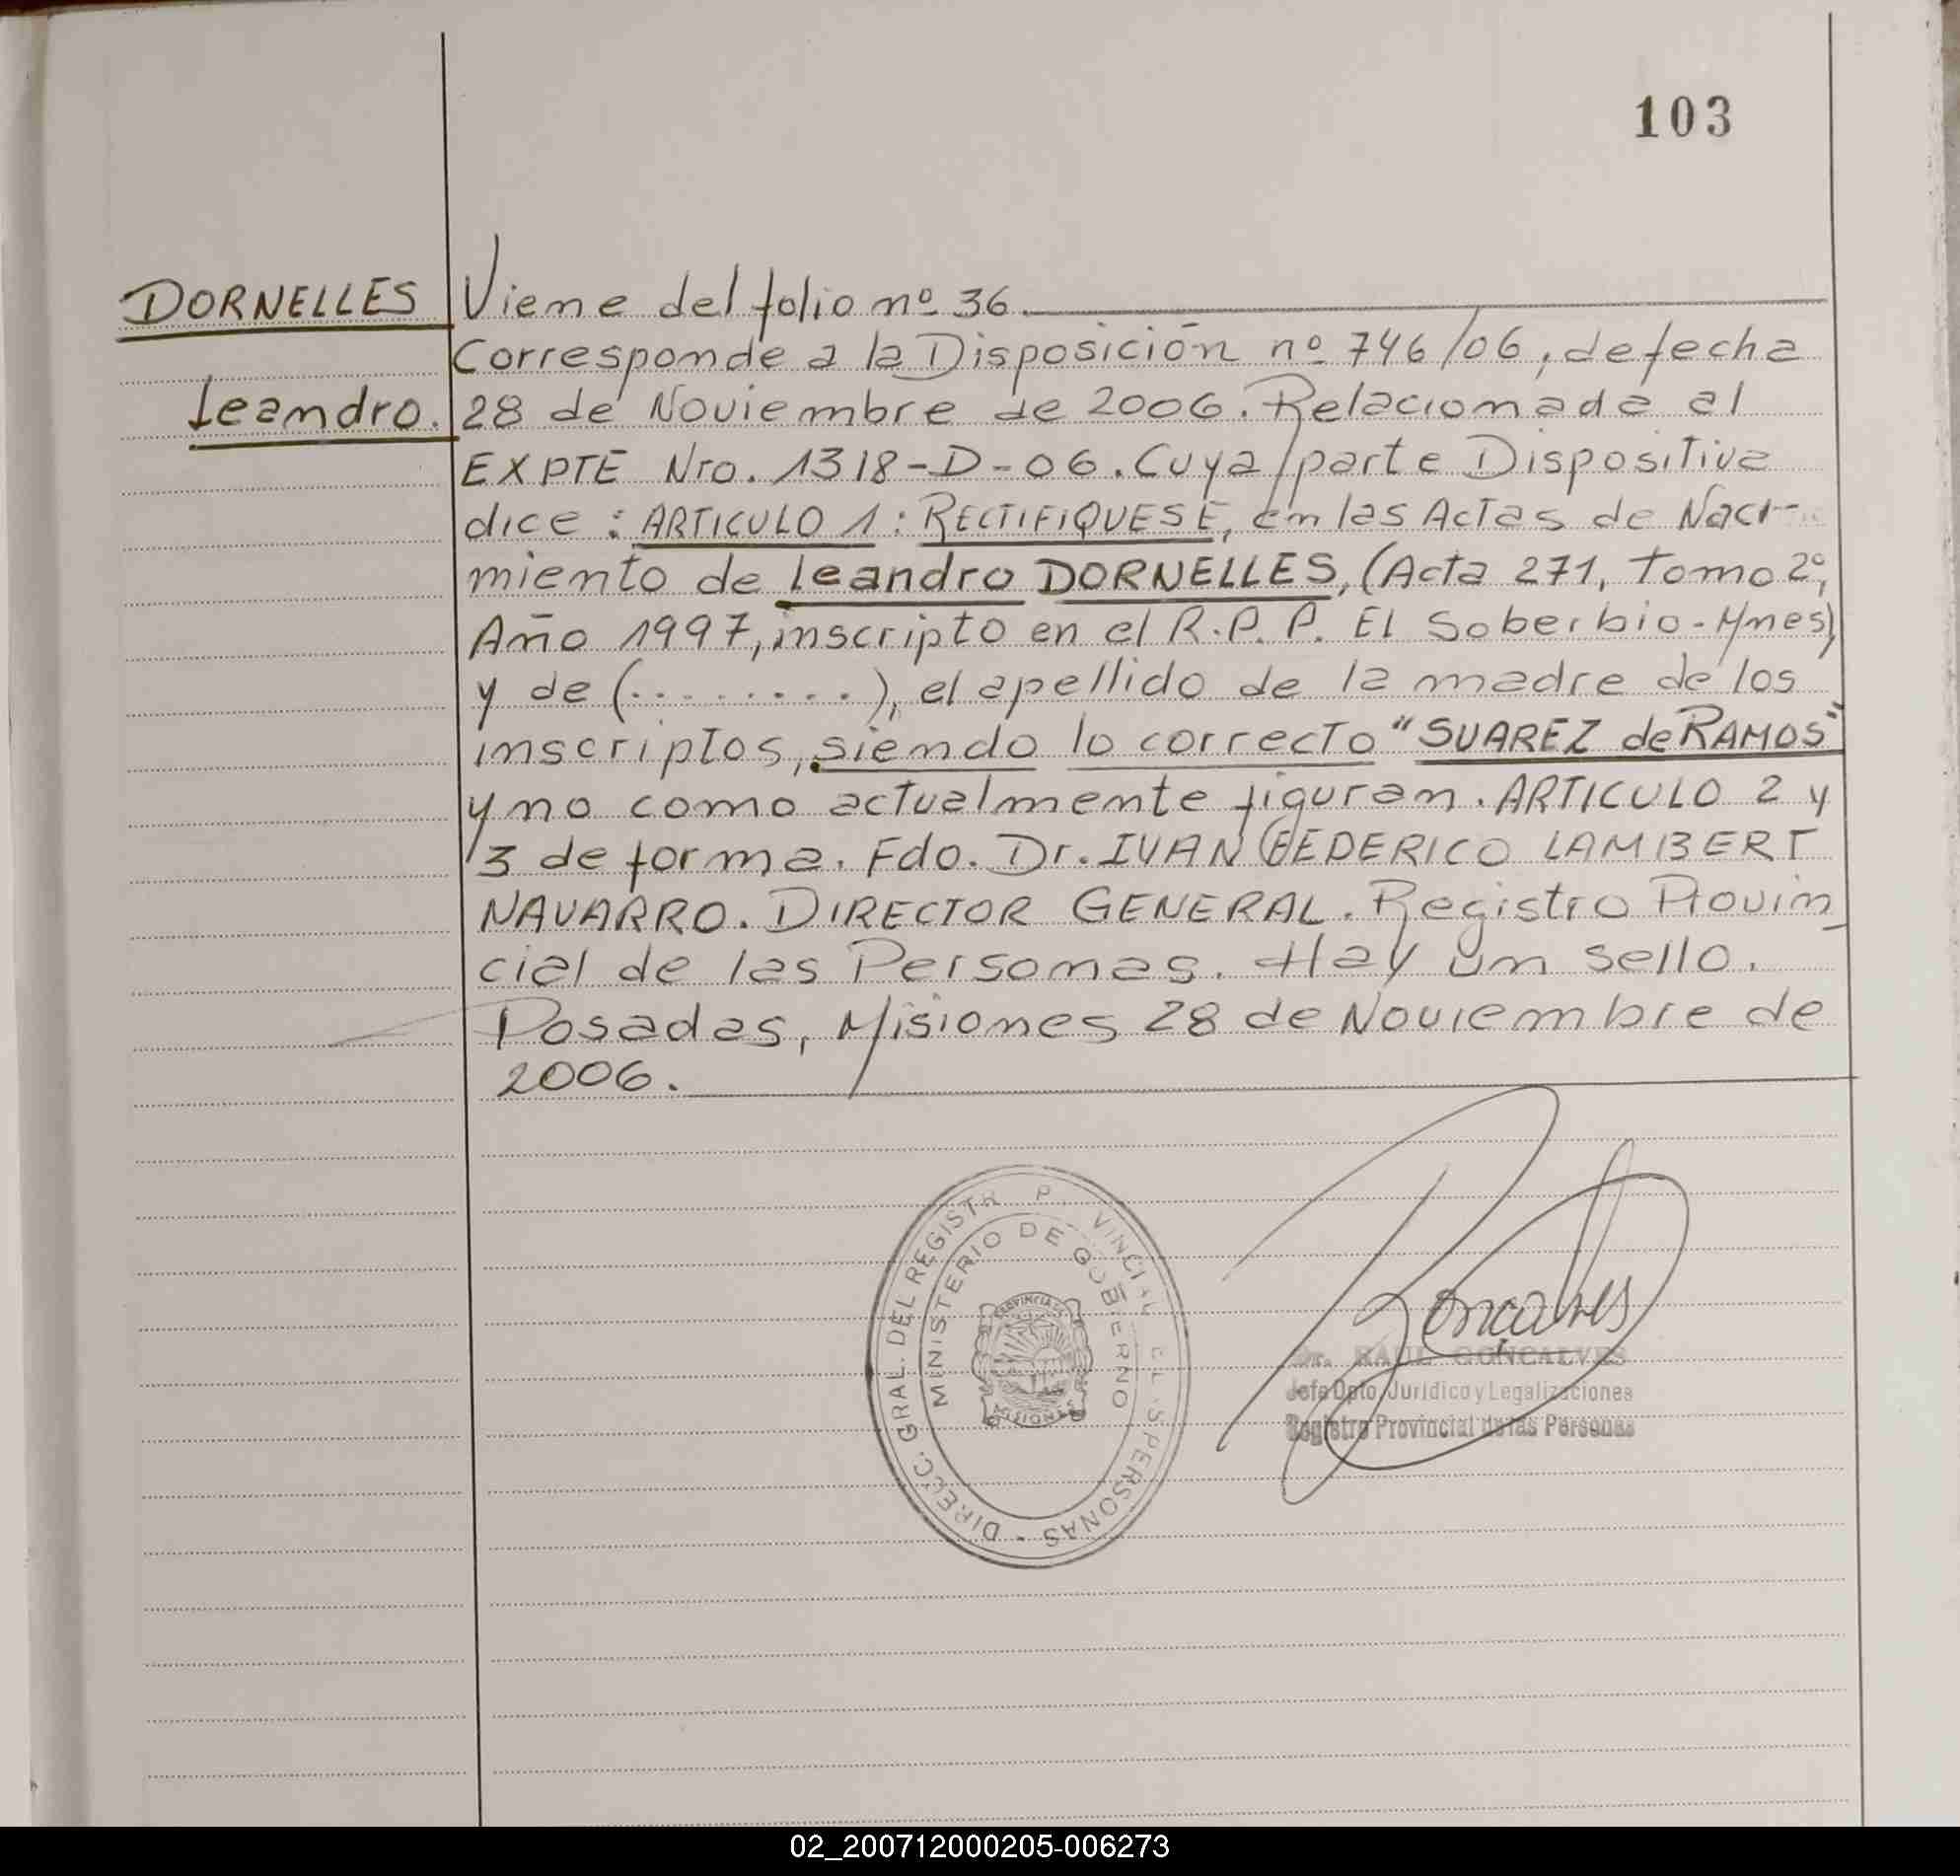 103
DORNELLES
Leandro.
Viene del folio nº 36.
Corresponde a la Disposición nº 746/06, de fecha
28 de Noviembre de 2006. Relacionada al
EXPTE Nro. 1318-D-06. Cuya parte Dispositiva
dice: ARTICULO 1: RECTIFIQUESE, en las Actas de Naci-
miento de Leandro DORNELLES, (Acta 271, Tomo 2º,
Año 1997, inscripto en el R.P.P. El Soberbio-Mnes),
y de (.........), el apellido de la madre de los
inscriptos, siendo lo correcto "SUAREZ de RAMOS"
y no como actualmente figuran. ARTICULO 2 y
3 de forma. Fdo. Dr. IVAN FEDERICO LAMBERT
NAVARRO. DIRECTOR GENERAL. Registro Provin_
cial de las Personas. Hay un sello.
Posadas, Misiones 28 de Noviembre de
2006.
DIRECC. GRAL. DEL REGISTR P VINCIAL E L S PERSONAS -
MINISTERIO DE GOBIERNO
PROVINCIA DE
MISIONES
Gonçalves
Dr. RAUL GONÇALVES
Jefe Dpto. Jurídico y Legalizaciones
Registro Provincial de las Personas
02_200712000205-006273